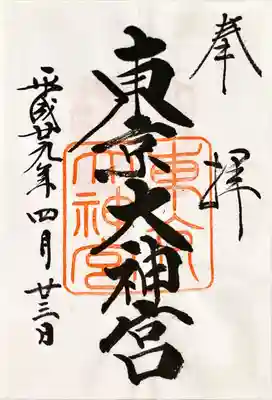 奉拝
東京大神宮
東京大神宮
平成廿九年四月廿三日